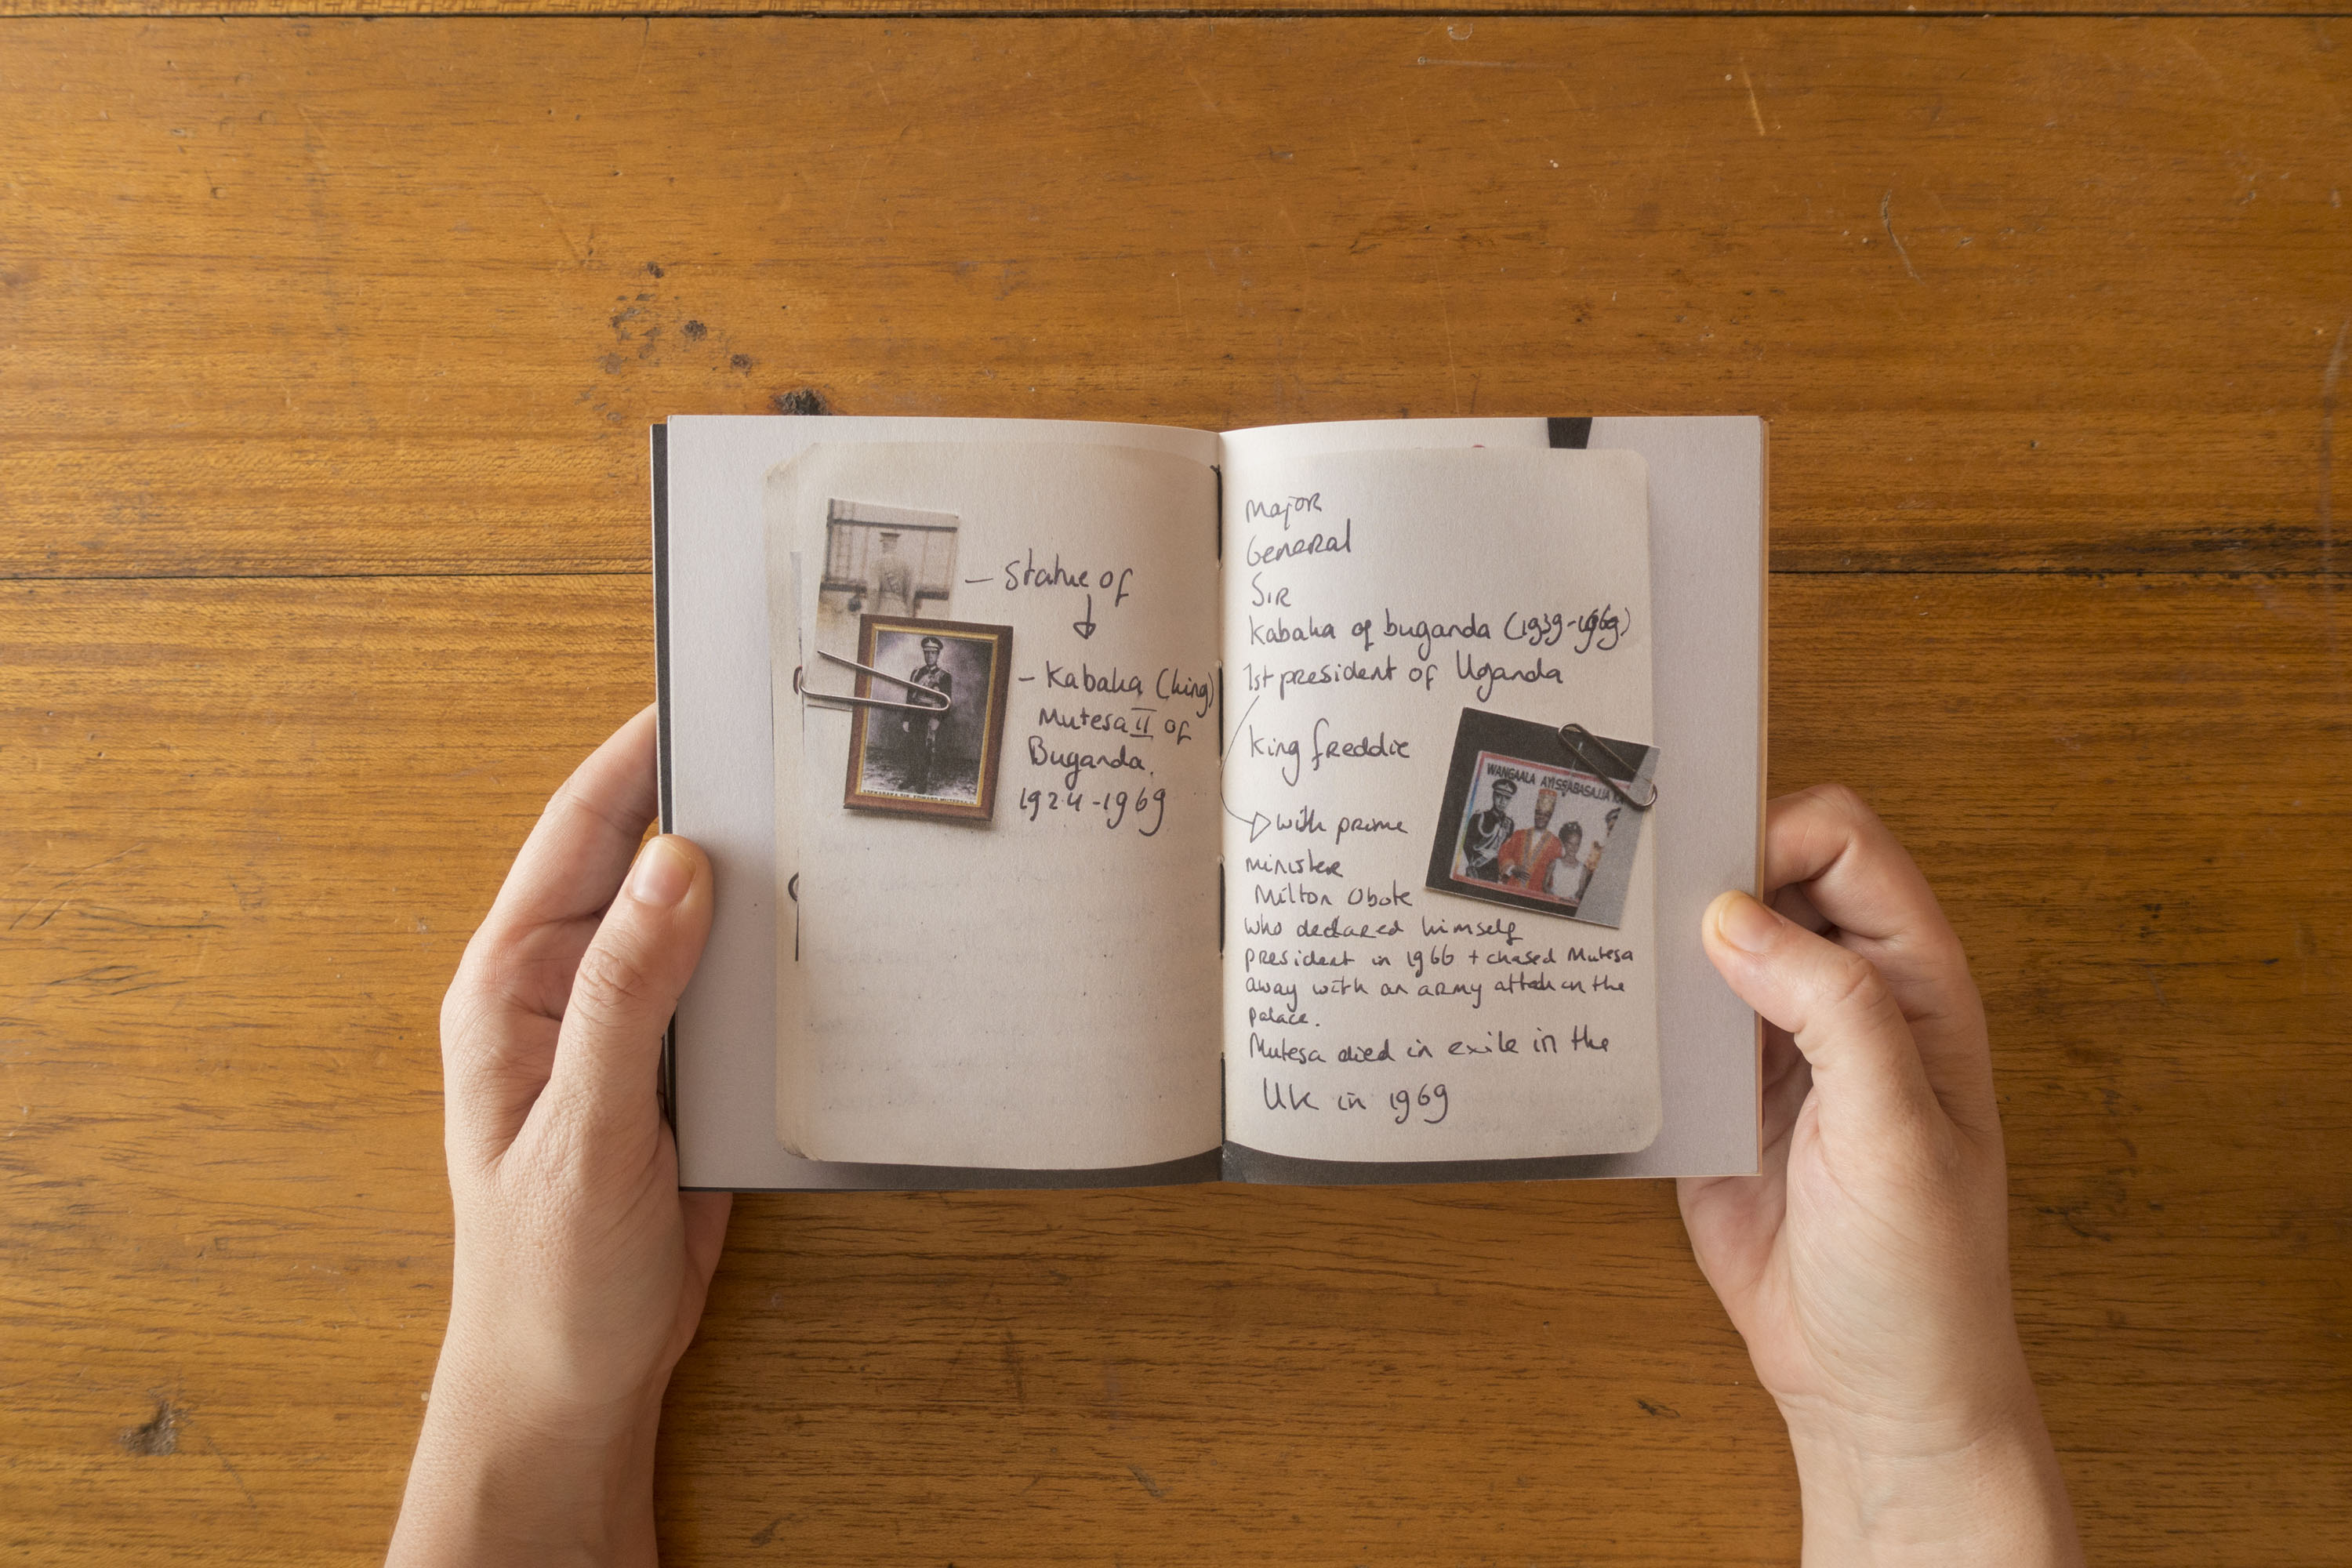 – Statue of
– Kabaka (king)
Mutesa II of
Buganda.
1924-1969
Major
General
Sir
Kabaka of buganda (1939-1969)
1st president of Uganda
King freddie
with prime
minister
Milton Obote
who declared himself
president in 1966 + chased Mutesa
away with an army attack on the
palace.
Mutesa died in exile in the
UK in 1969
WANGAALA AYI SSABASAJJA